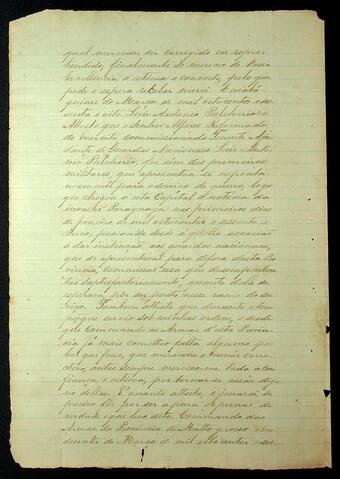 qual merecesse ser corrigido ou repre-
hendido, finalmente se mereço de Vossa
Excellencia a estima e conceito, pelo que
pede e espera receber mercê. Cuiabá
quinze de Março de mil oitocentos e ses-
senta e oito. Luis Antonio Pulcherio =
Attesto que o Senhor Alferes Reformado
do Exercito commissionado Tenente Aju-
dante de Guardas Nacionaes Luis Anto-
nio Pulcherio, foi um dos primeiros
militares, que apresentou-se espontа-
neamente para o serviço de guerra, logo
que chegou a esta Capital a noticia da
invasão Paraguaya nos primeiros dias
de Janeiro de mil oitocentos e sessenta e
cinco, passando desde
a dar instrucção aos guardas nacionaes,
que se apresentavão para defesa desta Pro-
vincia, commissão essa que desempenhou
tão satisfactoriamente, quanto delle se
esperava, por ser perito nesse ramo de ser-
viço. Tambem attesto que durante o tem-
po que servio sob minhas ordens, e desde
que Commando as Armas d'esta Provin-
cia já mais cometteo falta alguma pe-
la qual fosse, que merecesse a menor corre-
cção, antes sempre mereceo-me toda a con-
fiança e estima, por tornar-se assás dig-
no dellas. E quanto attesto, e jurarei se
preciso fôr por ser a pura expressão da
verdade. Quartel do Commando das
Armas da Provincia de Matto grosso em
desecete de Março de mil oitocentos e ses-